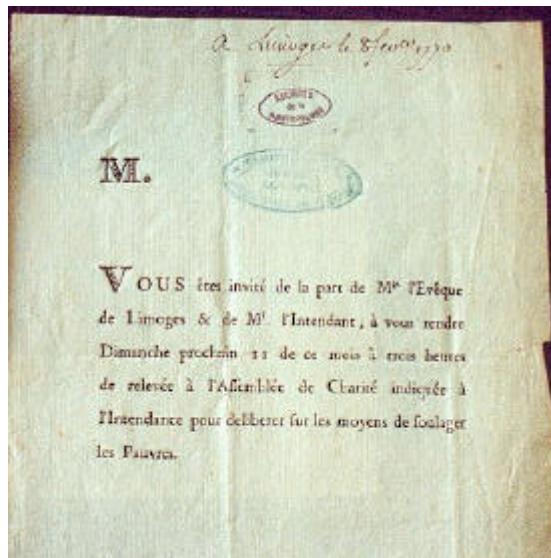 A Limoges le 8 fevrier 1770
ARCHIVES
de la
HAUTE-VIENNE
M.
VOUS êtes invité de la part de Mgr l'Evêque
de Limoges & de Mr. l'Intendant, à vous rendre
Dimanche prochain 11 de ce mois à trois heures
de relevée à l'Assemblée de Charité indiquée à
l'Intendance pour deliberer sur les moyens de soulager
les Pauvres.